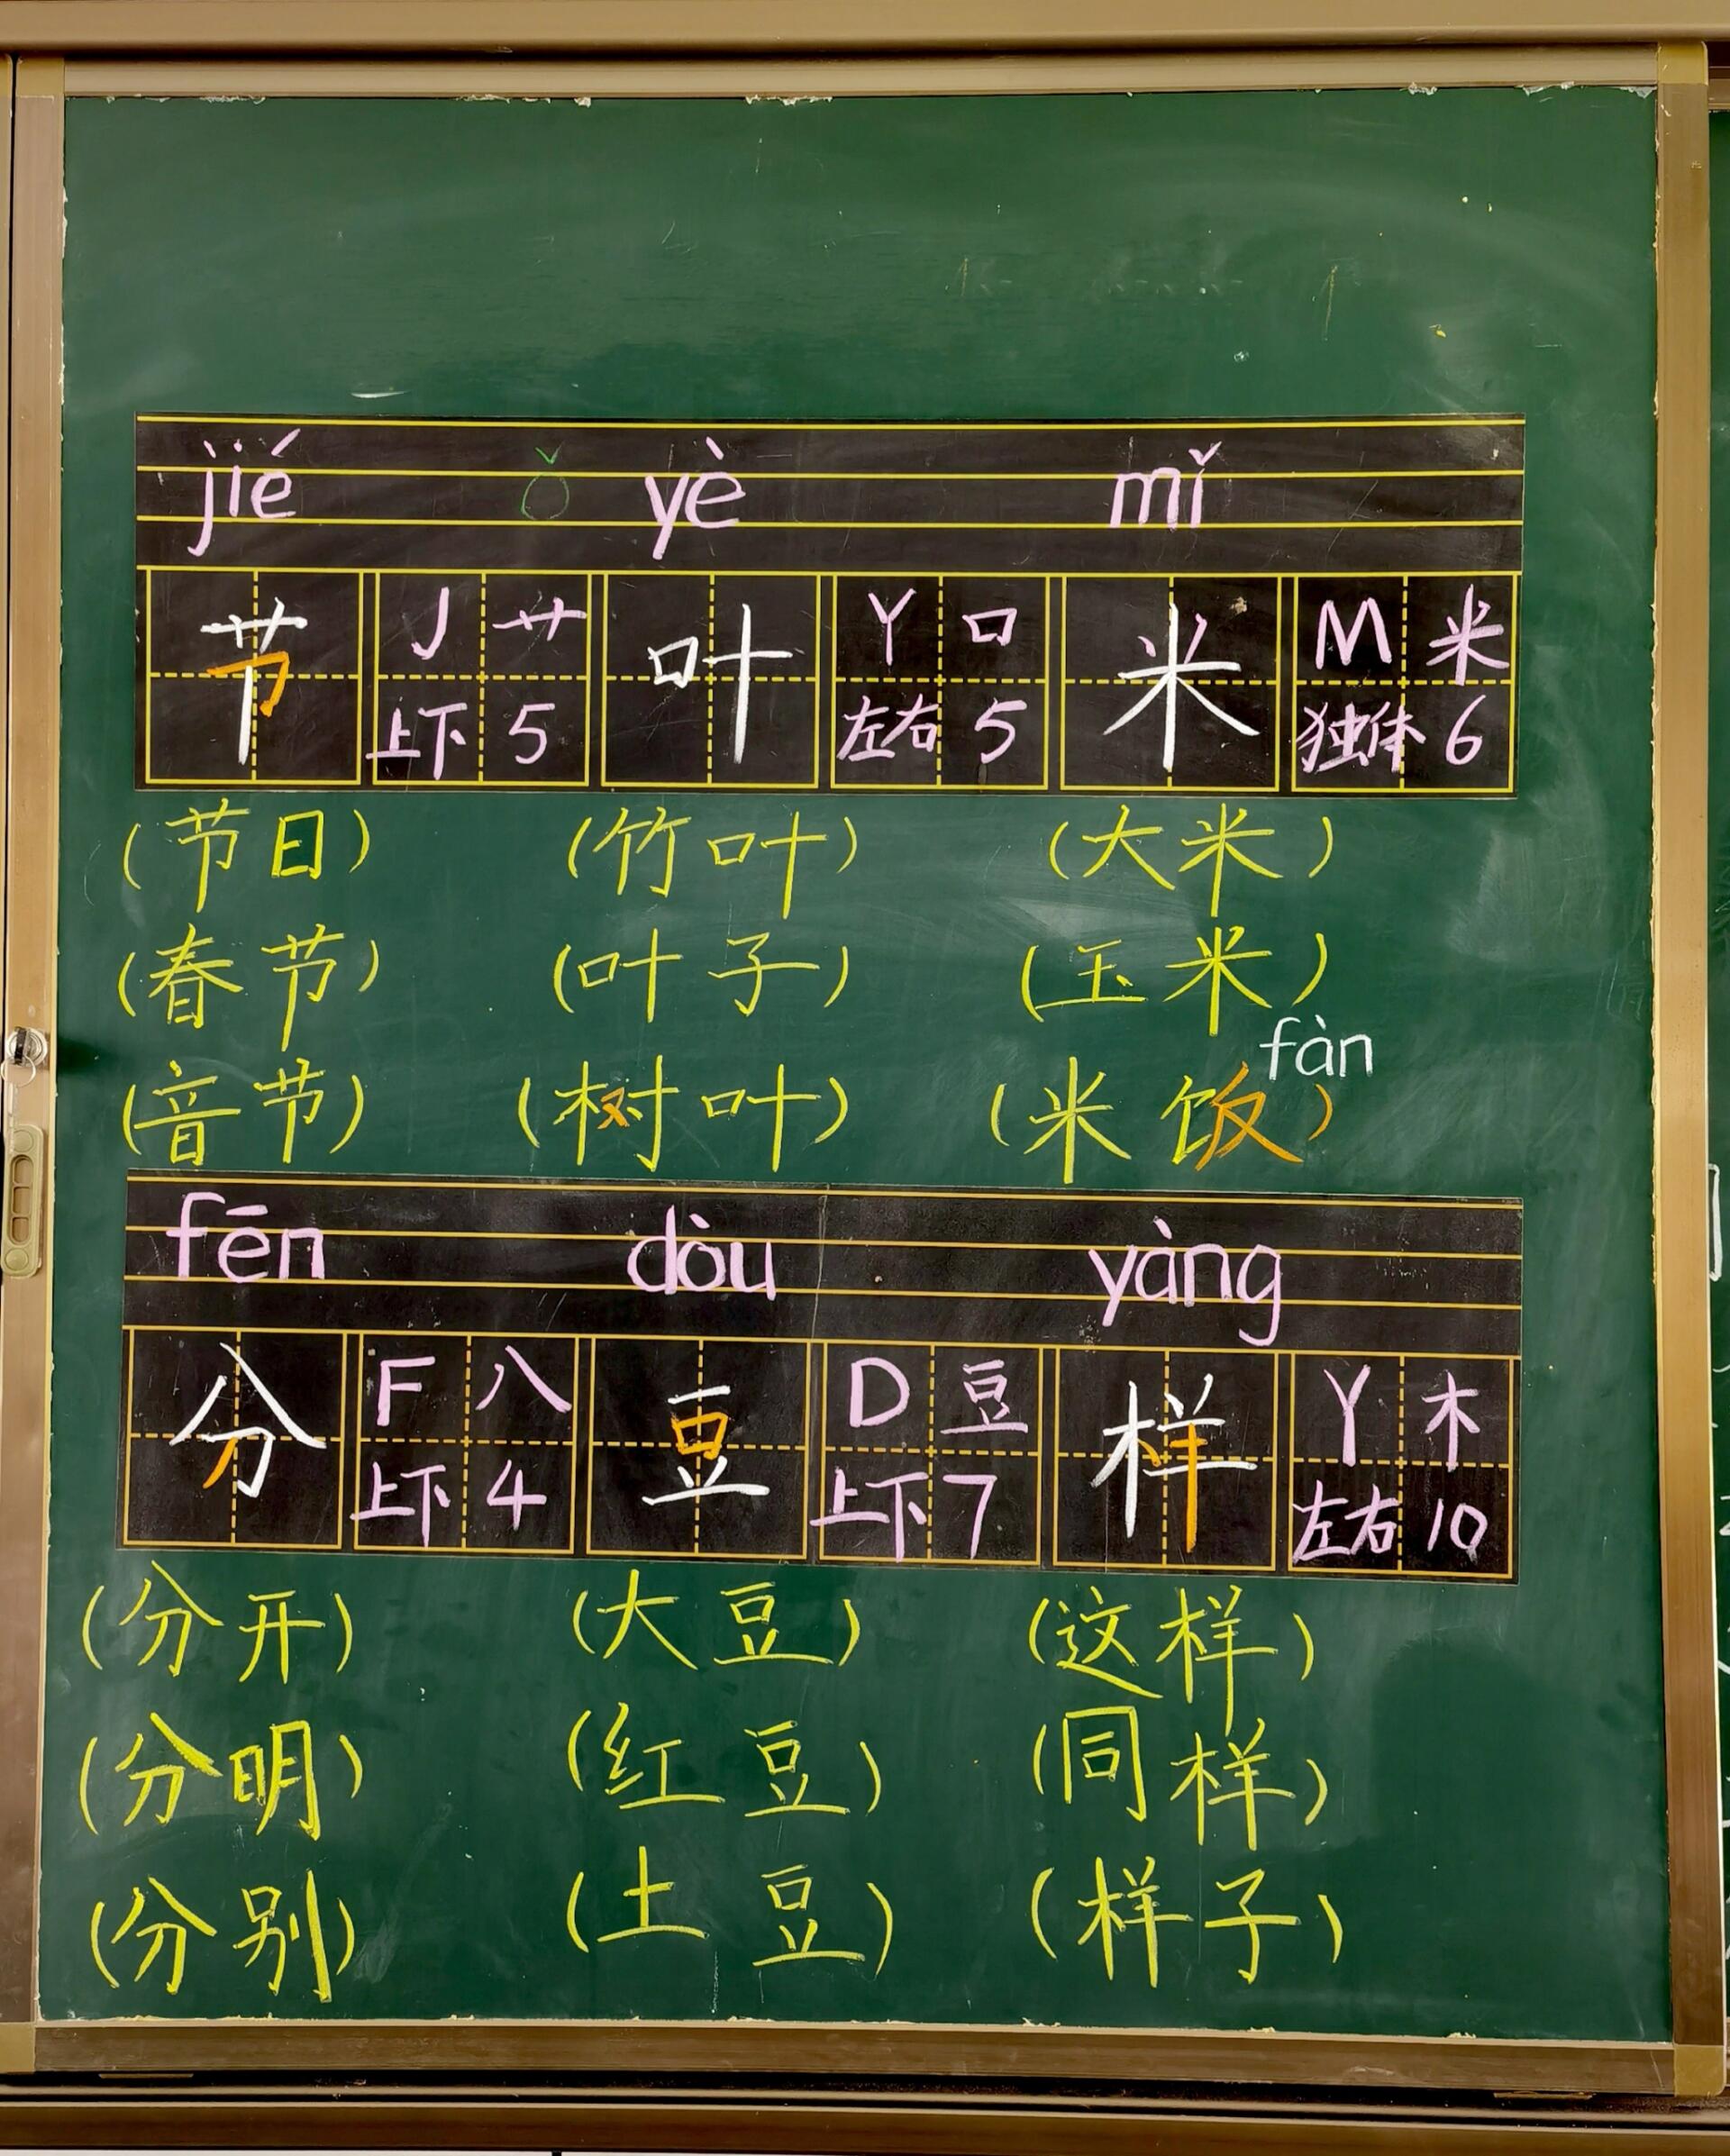 jié ǒ yè mǐ
节 J 艹 叶 Y 口 米 M 米
上下 5 左右 5 独体 6
(节日) (竹叶) (大米)
(春节) (叶子) (玉米)
fàn
(音节) (树叶) (米饭)
fēn dòu yàng
分 F 八 豆 D 豆 样 Y 木
上下 4 上下 7 左右 10
(分开) (大豆) (这样)
(分明) (红豆) (同样)
(分别) (土豆) (样子)